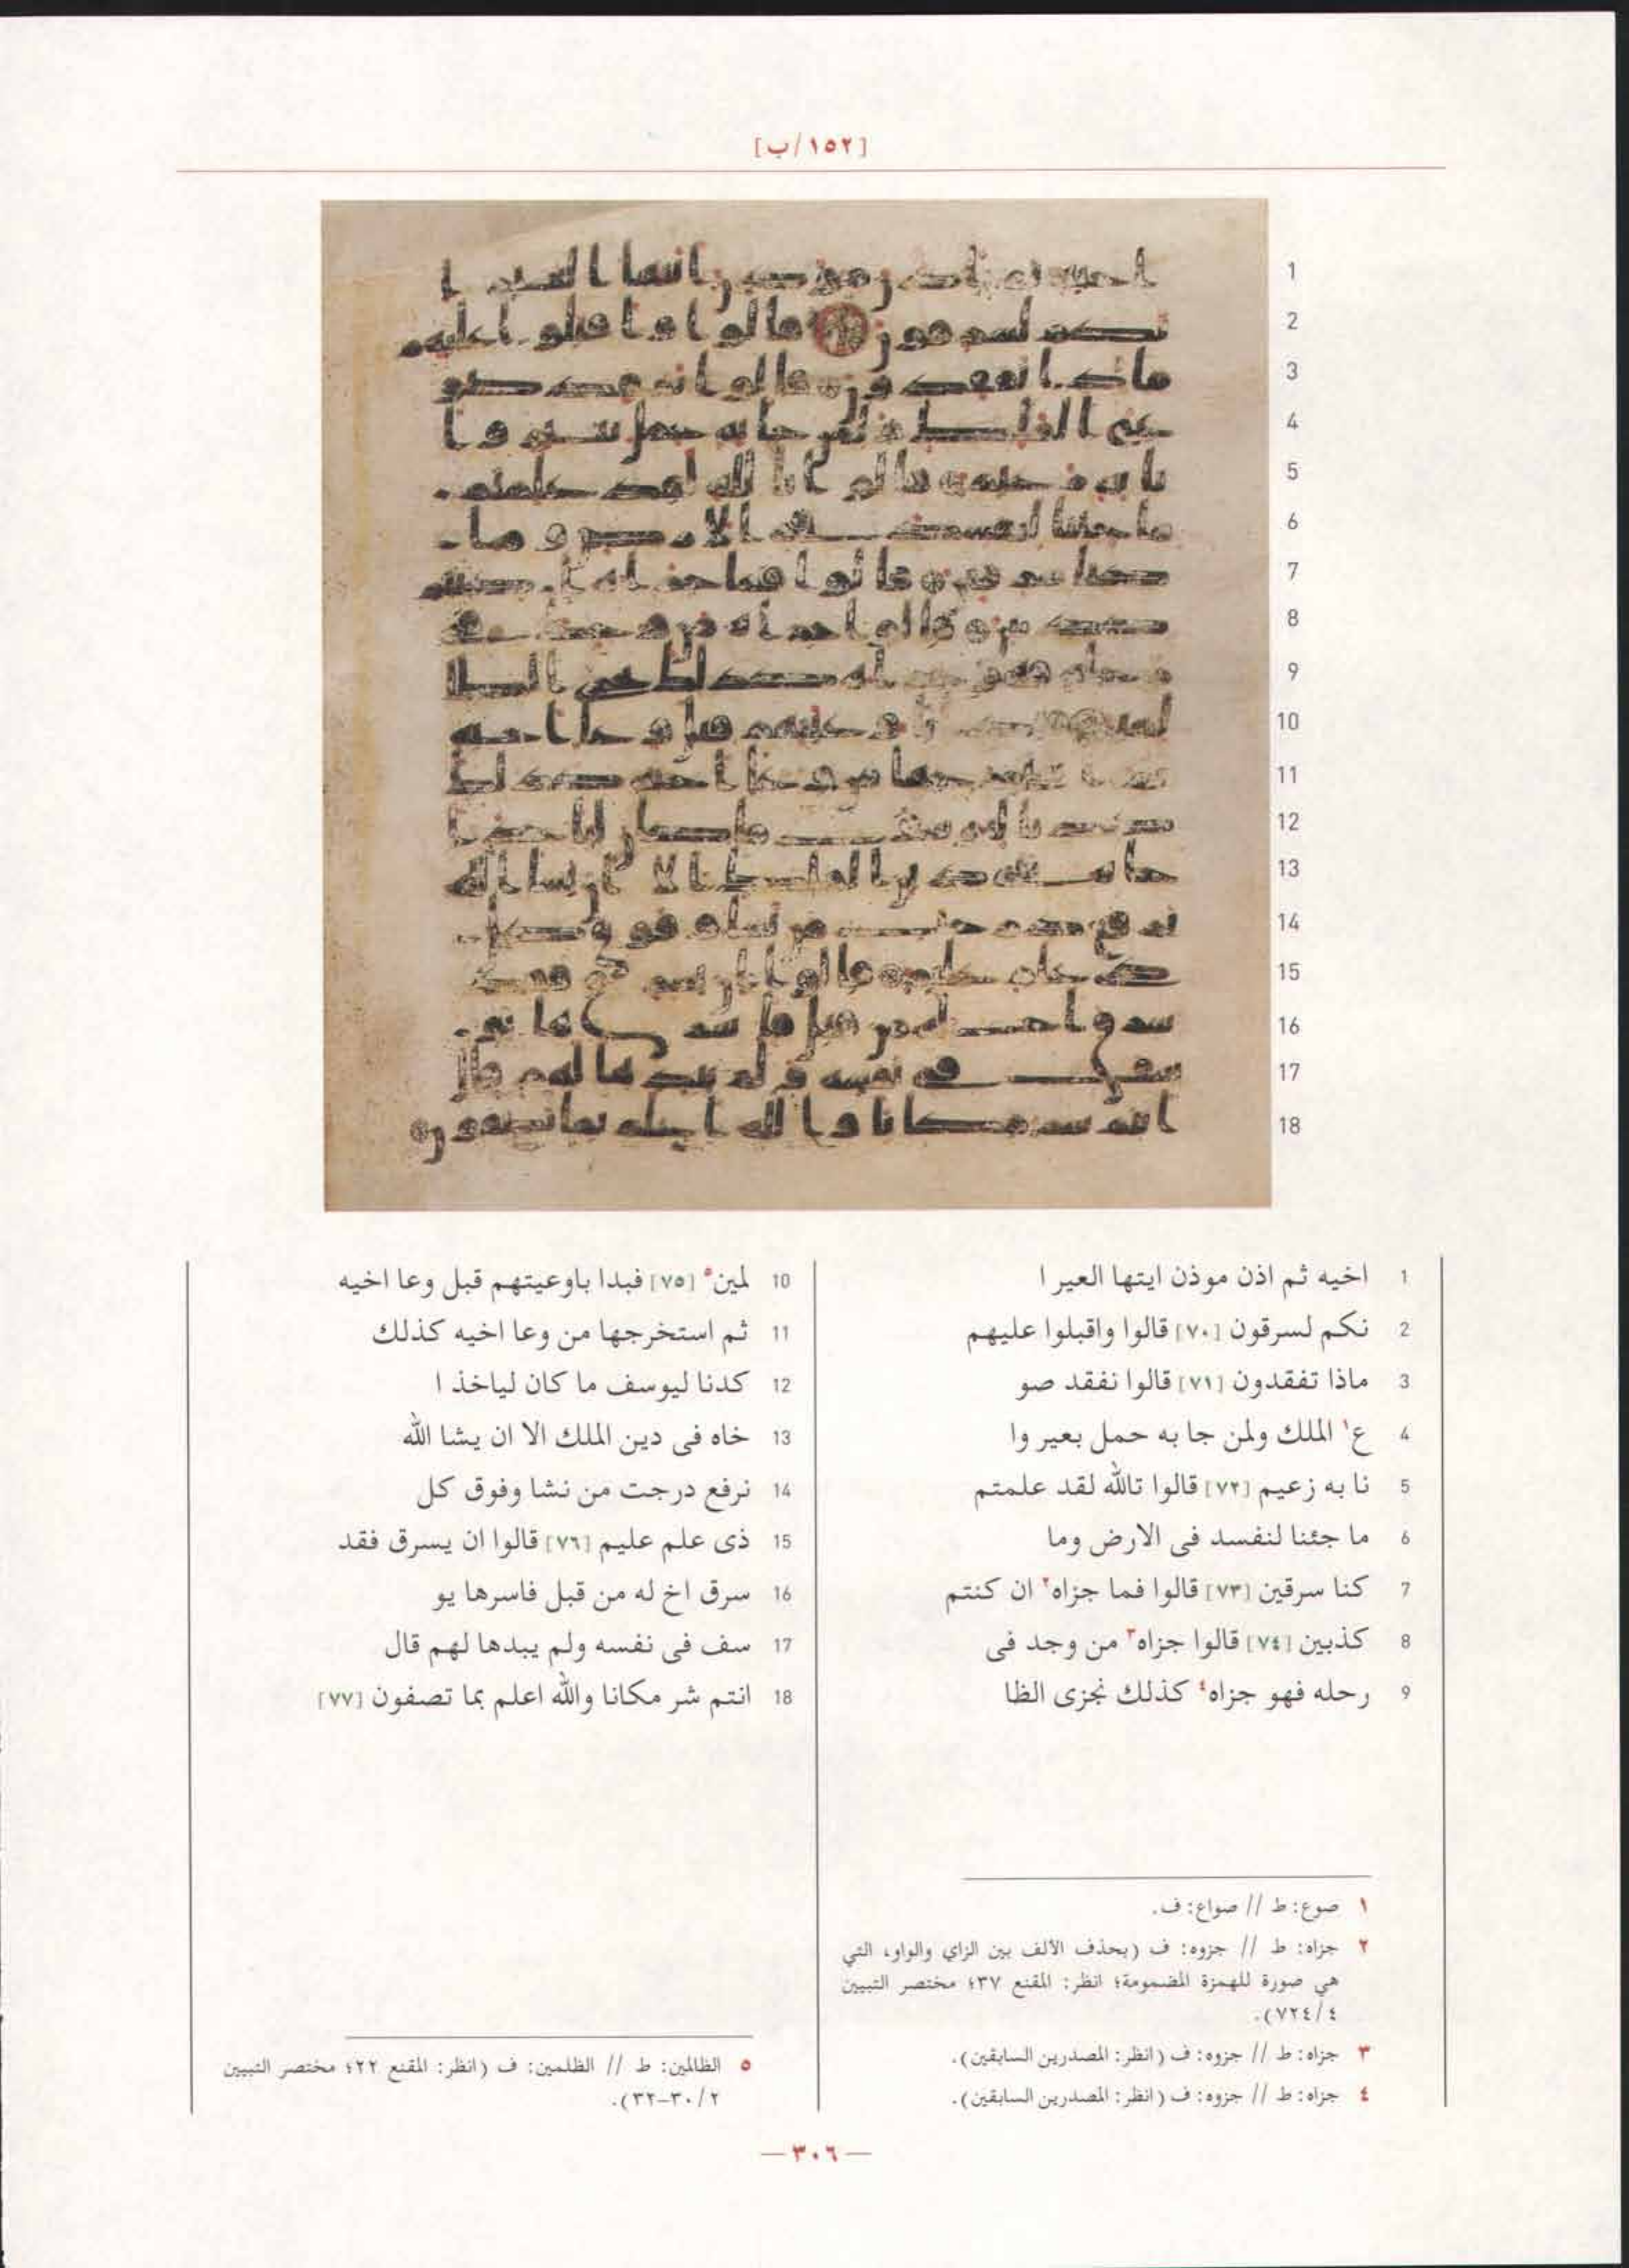 [١٥٢/ب]
1 اخيه ثم اذن موذن ايتها العير ا
2 نكم لسرقون [٧٠] قالوا واقبلوا عليهم
3 ماذا تفقدون [٧١] قالوا نفقد صو
4 ع١ الملك ولمن جا به حمل بعير وا
5 نا به زعيم [٧٢] قالوا تالله لقد علمتم
6 ما جئنا لنفسد فى الارض وما
7 كنا سرقين [٧٣] قالوا فما جزاه٢ ان كنتم
8 كذبين [٧٤] قالوا جزاه٣ من وجد فى
9 رحله فهو جزاه٤ كذلك نجزى الظا
10 لمين٥ [٧٥] فبدا باوعيتهم قبل وعا اخيه
11 ثم استخرجها من وعا اخيه كذلك
12 كدنا ليوسف ما كان لياخذ ا
13 خاه فى دين الملك الا ان يشا الله
14 نرفع درجت من نشا وفوق كل
15 ذى علم عليم [٧٦] قالوا ان يسرق فقد
16 سرق اخ له من قبل فاسرها يو
17 سف فى نفسه ولم يبدها لهم قال
18 انتم شر مكانا والله اعلم بما تصفون [٧٧]
١ صوع: ط // صواع: ف.
٢ جزاه: ط // جزوه: ف (بحذف الألف بين الزاي والواو، التي
هي صورة للهمزة المضمومة؛ انظر: المقنع ٣٧؛ مختصر التبيين
٤/٧٢٤).
٣ جزاه: ط // جزوه: ف (انظر: المصدرين السابقين).
٤ جزاه: ط // جزوه: ف (انظر: المصدرين السابقين).
٥ الظالمين: ط // الظلمين: ف (انظر: المقنع ٢٢؛ مختصر التبيين
٢/٣٠-٣٢).
— ٣٠٦ —